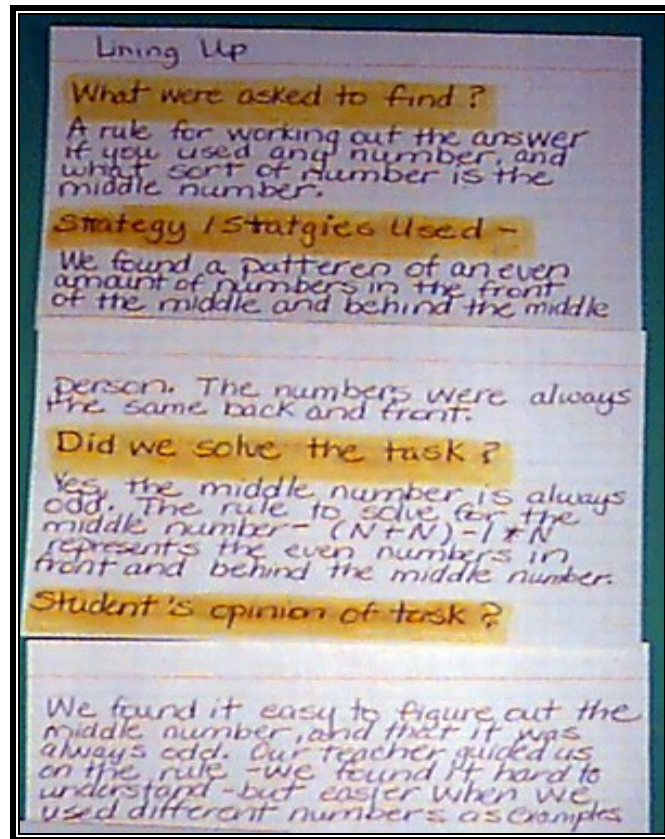 Lining Up
What were asked to find ?
A rule for working out the answer
if you used any number, and
what sort of number is the
middle number.
Strategy / Statgies Used -
We found a patteren of an even
amount of numbers in the front
of the middle and behind the middle
person. The numbers were always
the same back and front.
Did we solve the task ?
Yes, the middle number is always
odd. The rule to solve for the
middle number - (N+N)-1 * N
represents the even numbers in
front and behind the middle number.
Student's opinion of task ?
We found it easy to figure out the
middle number, and that it was
always odd. Our teacher guided us
on the rule - we found it hard to
understand - but easier when we
used different numbers as examples